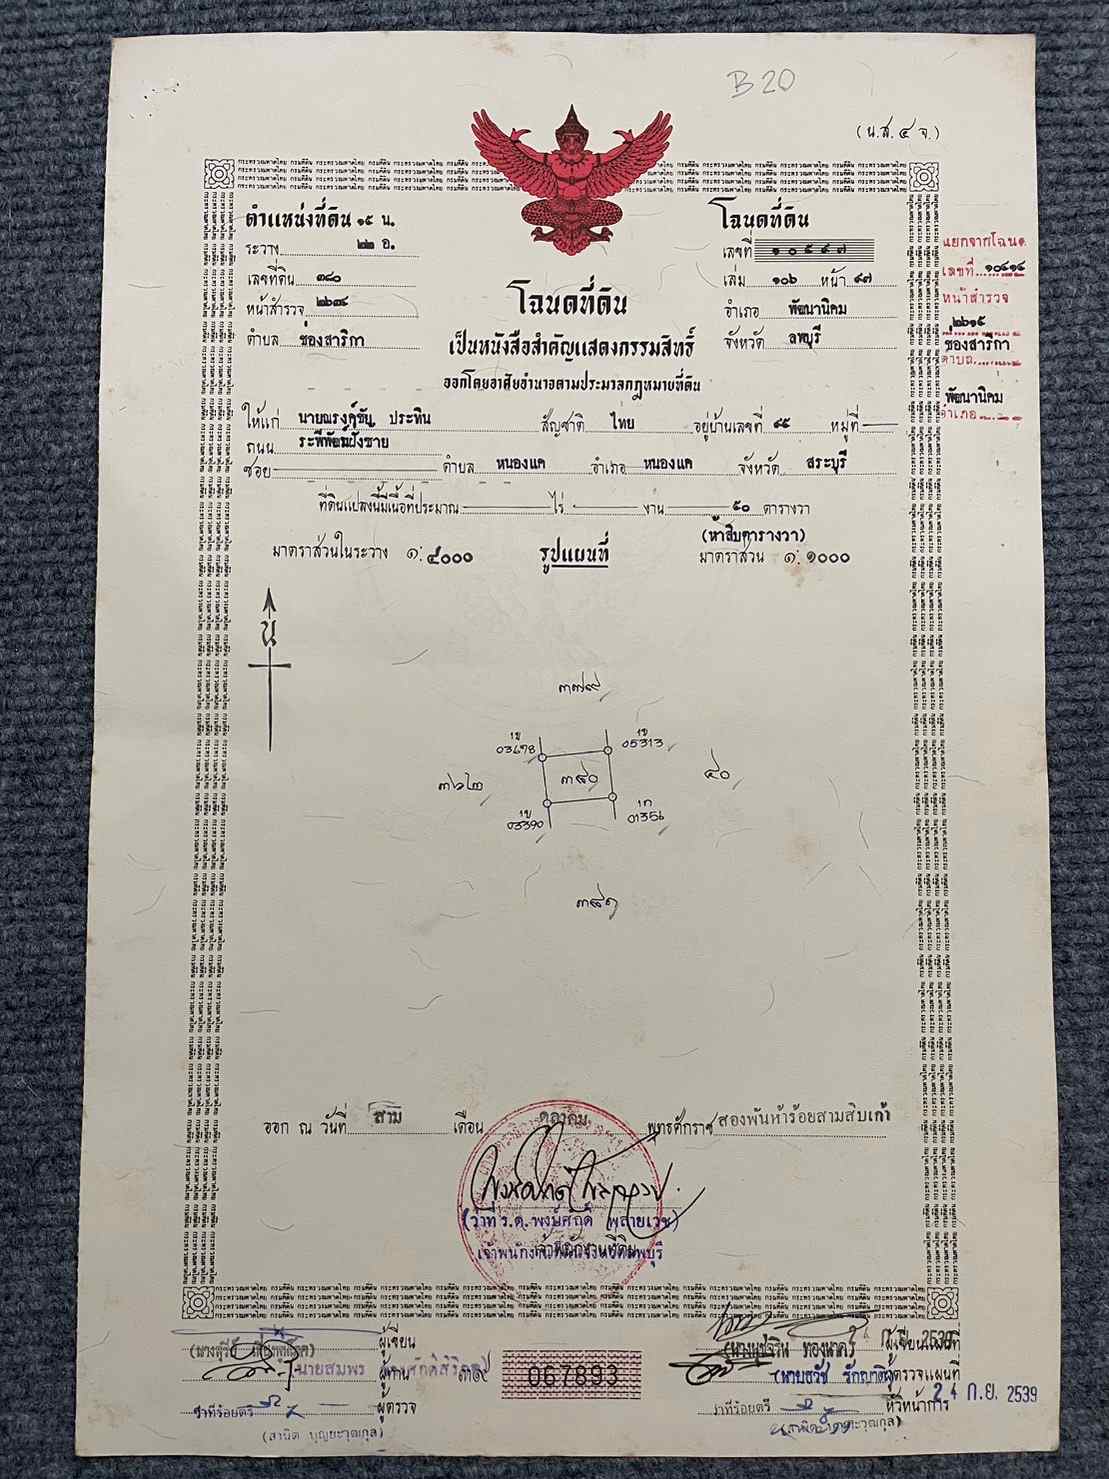 B 20
(น.ส. ๔ จ.)
ตำแหน่งที่ดิน ๑๕ น.
ระวาง ๒๒ อ.
เลขที่ดิน ๓๘๐
หน้าสำรวจ ๒๖๓๔
ตำบล ช่องสาริกา
โฉนดที่ดิน
เลขที่ ๑๐๕๙๗
เล่ม ๑๐๖ หน้า ๙๗
อำเภอ พัฒนานิคม
จังหวัด ลพบุรี
แยกจากโฉนด
เลขที่ ๑๐๔๑๔
หน้าสำรวจ
๒๖๑๕
ช่องสาริกา
ตำบล
พัฒนานิคม
อำเภอ
โฉนดที่ดิน
เป็นหนังสือสำคัญแสดงกรรมสิทธิ์
ออกโดยอาศัยอำนาจตามประมวลกฎหมายที่ดิน
ให้แก่ นายณรงค์ชัย ประทิน สัญชาติ ไทย อยู่บ้านเลขที่ ๙๕ หมู่ที่
ถนน ระพีพัฒน์ฝั่งซ้าย
ซอย ตำบล หนองแค อำเภอ หนองแค จังหวัด สระบุรี
ที่ดินแปลงนี้มีเนื้อที่ประมาณ ไร่ งาน ๕๐ ตารางวา
(ห้าสิบตารางวา)
มาตราส่วนในระวาง ๑:๔๐๐๐ รูปแผนที่ มาตราส่วน ๑:๑๐๐๐
น
๓๗๙
1ข
1ข 05313
๓๖๒ ๓๘๐ ๔๐
1ข 03390
1ก 01356
๓๘๑
ออก ณ วันที่ สาม เดือน ตุลาคม พุทธศักราช สองพันห้าร้อยสามสิบเก้า
(ว่าที่ ร.ต. พงษ์ศักดิ์ พลายเวช)
เจ้าพนักงานที่ดิน
ผู้เขียน
นายสมพร
ผู้ทาน
ว่าที่ร้อยตรี ผู้ตรวจ
(สานิต บุญยะวุฒกุล)
067893
ทองนาคร์
ผู้ตรวจแผนที่
ว่าที่ร้อยตรี หัวหน้าการ
24 ก.ย. 2539